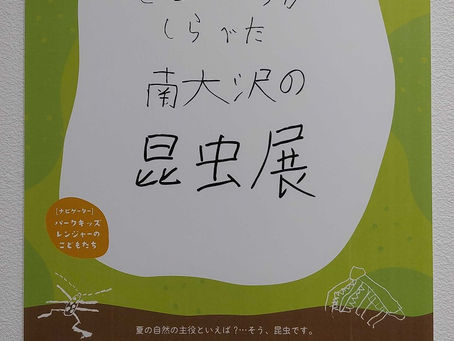 しらべた
南大沢の
昆虫展
[ナビゲーター]
パークキッズ
レンジャーの
こどもたち
夏の自然の主役といえば？…そう、昆虫です。